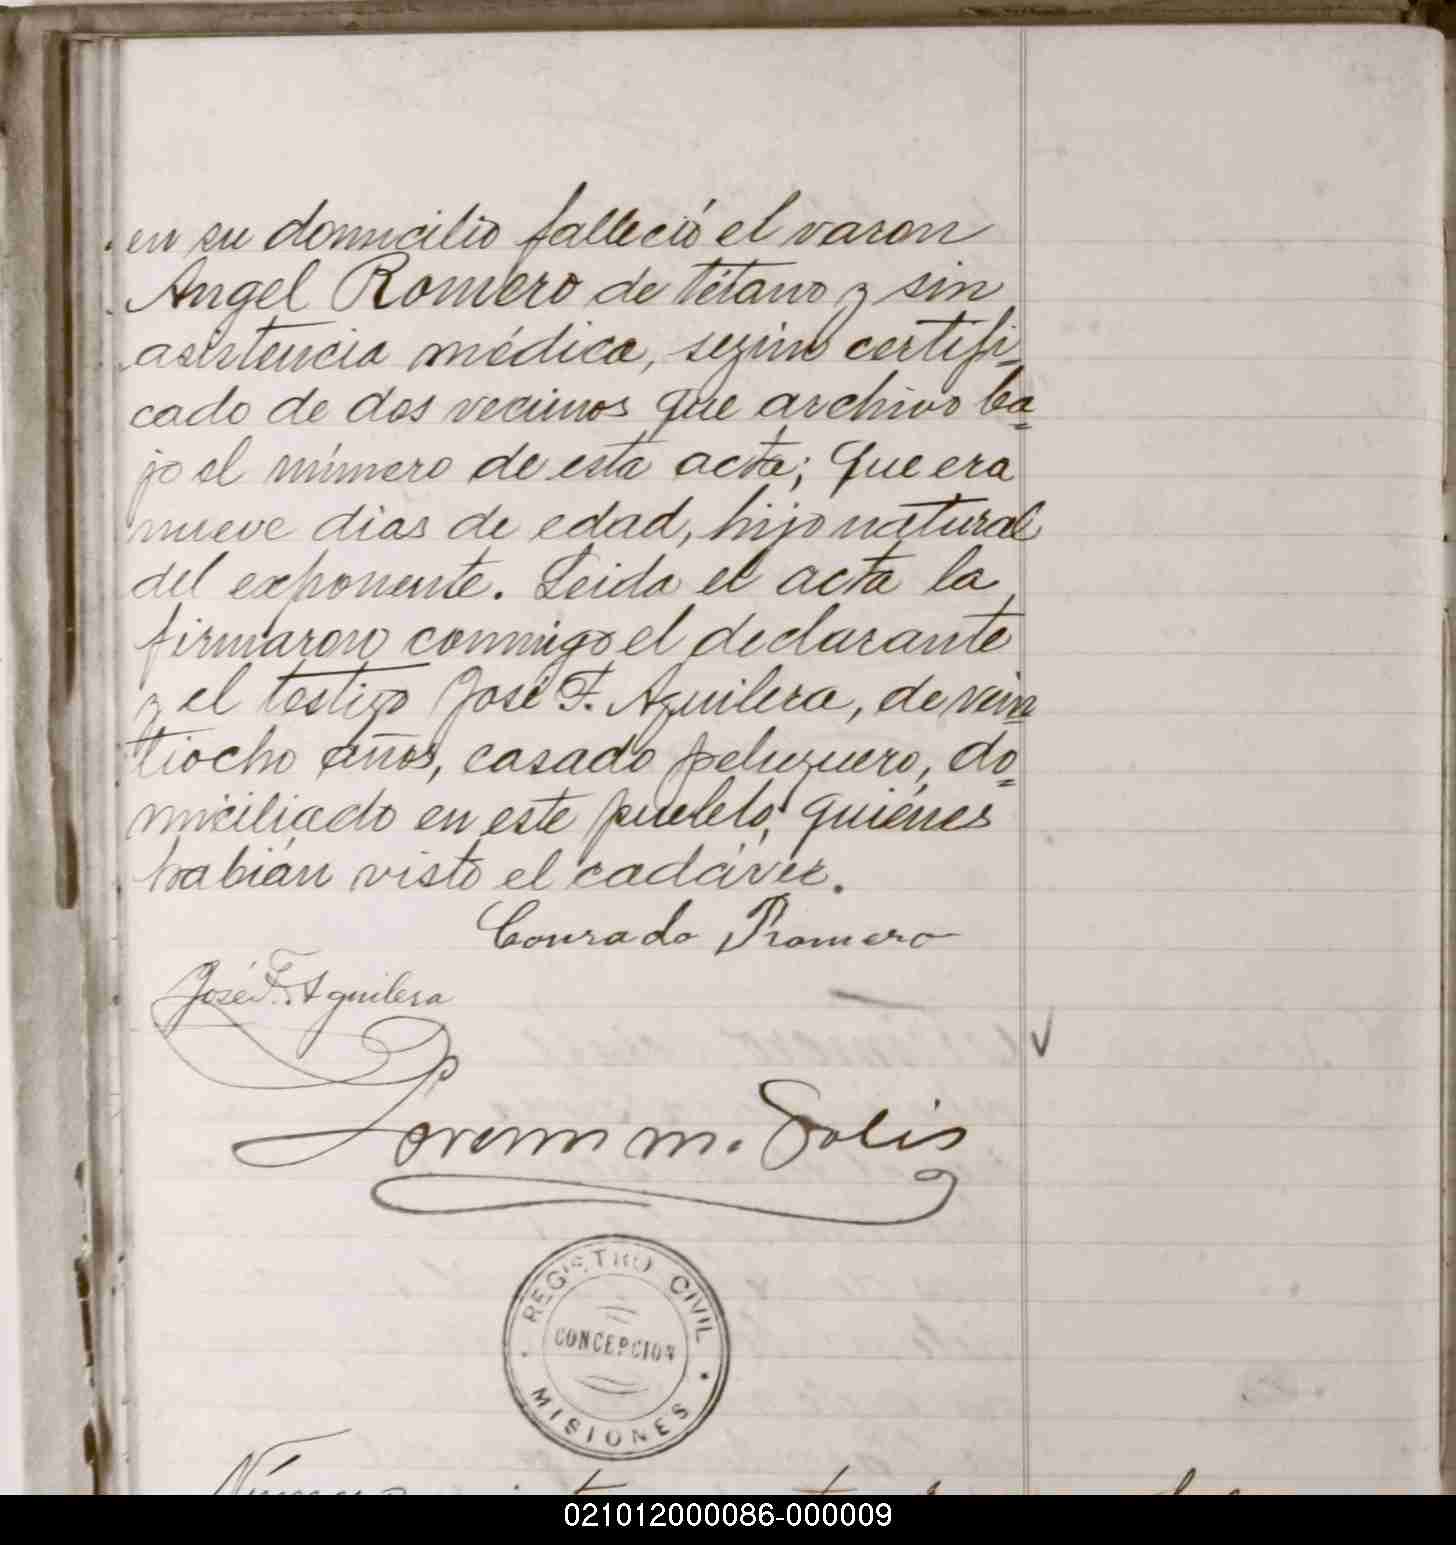 en su domicilio falleció el varon
Angel Romero de tétano y sin
asistencia médica, segun certifi-
cado de dos vecinos que archivo ba=
jo el número de esta acta; que era
nueve dias de edad, hijo natural
del exponente. Leida el acta la
firmaron conmigo el declarante
y el testigo José F. Aguilera, de vein
tiocho años, casado peluquero, do=
miciliado en este pueblo, quiénes
habián visto el cadáver.
Conrado Romero
José F. Aguilera
m. Solis
REGISTRO CIVIL
CONCEPCION
MISIONES
021012000086-000009